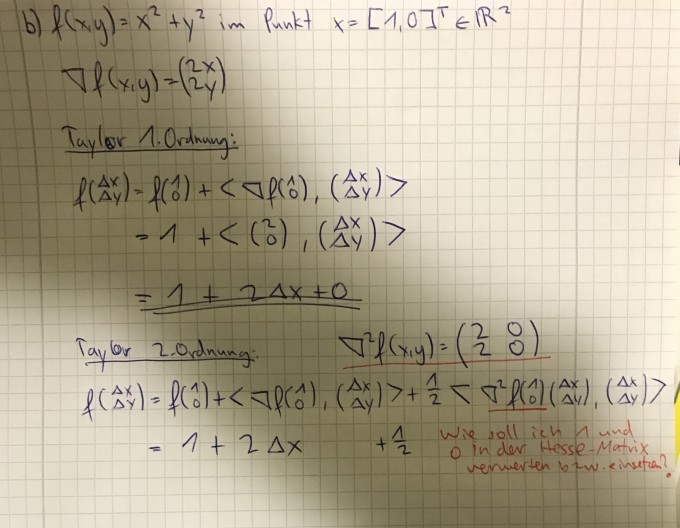 b) f(x,y) = x² + y² im Punkt x = [1,0]ᵀ ∈ ℝ²
∇f(x,y) = (2x 2y)
Taylor 1. Ordnung:
f(Δx Δy) = f(1 0) + < ∇f(1 0), (Δx Δy) >
= 1 + < (2 0), (Δx Δy) >
= 1 + 2Δx + 0
Taylor 2. Ordnung: ∇²f(x,y) = (2 0 2 0)
f(Δx Δy) = f(1 0) + < ∇f(1 0), (Δx Δy) > + 1/2 < ∇²f(1 0) (Δx Δy), (Δx Δy) >
= 1 + 2Δx + 1/2
Wie soll ich 1 und
0 in der Hesse-Matrix
verwerten bzw. einsetzen?